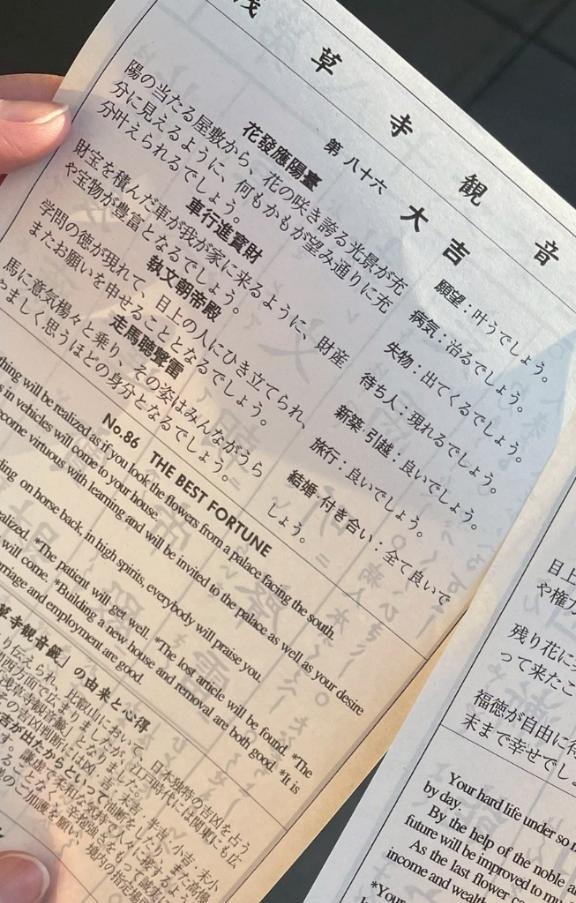 浅草寺観音
第八十六
大吉
花發應陽臺
陽の当たる屋敷から、花の咲き誇る光景が充
分に見えるように、何もかもが望み通りに充
分叶えられるでしょう。
車行進寳財
財宝を積んだ車が我が家に来るように、財産
や宝物が豊富となるでしょう。
執文朝帝殿
学問の徳が現れて、目上の人にひき立てられ、
またお願いを申せることとなるでしょう。
走馬聴聲雷
馬に意気楊々と乗り、その姿はみんながうら
やましく思うほどの身分となるでしょう。
願望：叶うでしょう。
病気：治るでしょう。
失物：出てくるでしょう。
待ち人：現れるでしょう。
新築・引越：良いでしょう。
旅行：良いでしょう。
結婚・付き合い：全て良いで
しょう。
No.86 THE BEST FORTUNE
thing will be realized as if you look the flowers from a palace facing the south.
s in vehicles will come to your house.
ecome virtuous with learning and will be invited to the palace as well as your desire
ding on horse back, in high spirits, everybody will praise you.
ealized. *The patient will get well. *The lost article will be found. *The
will come. *Building a new house and removal are both good. *It is
rriage and employment are good.
草寺観音籤」の由来と心得
り伝えられ、比叡山において日本独特の吉凶を占う
目上
や権力
残り花に
って来たこ
福徳が自由に得
末まで幸せでし
Your hard life under so
by day.
By the help of the noble
future will be improved to
As the last flower
income and wealth
*Your